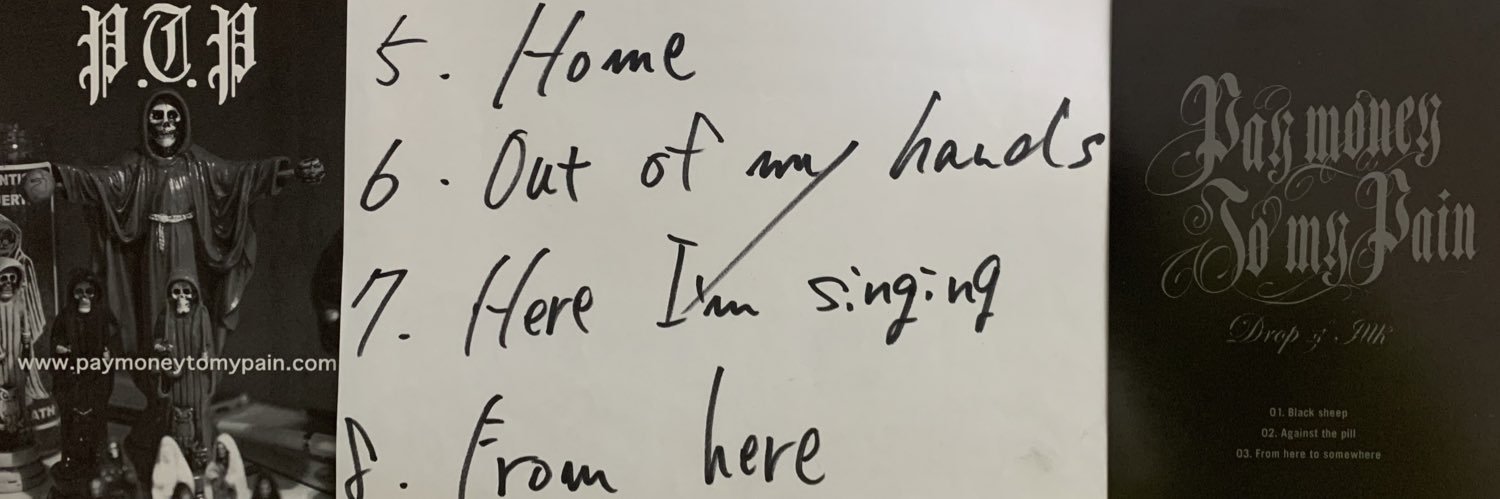 P.T.P
NTI
UERY
www.paymoneytomypain.com
ATH
5. Home
6. Out of my hands
7. Here I'm singing
8. From here
Pay money
To my Pain
Drop of INK
01. Black sheep
02. Against the pill
03. From here to somewhere